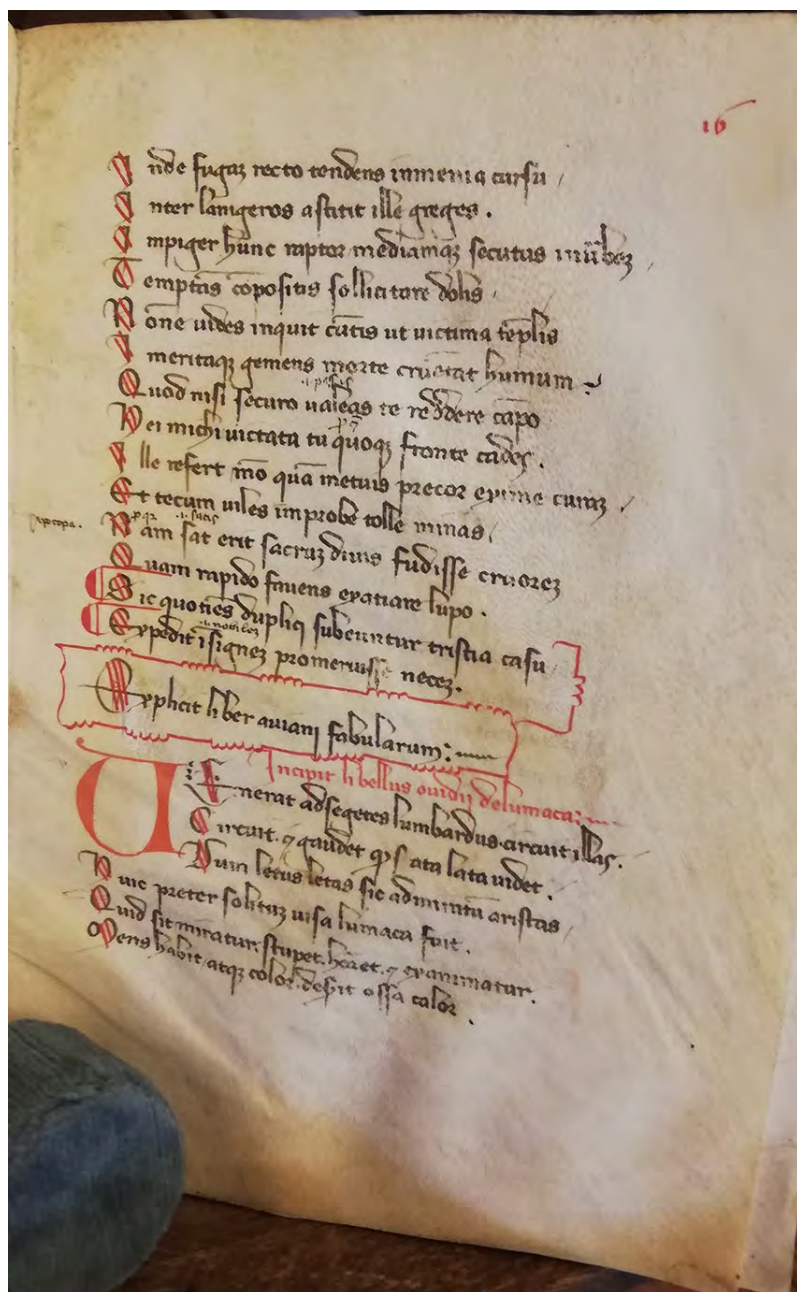 16
Inde fugaz recto tendens in menia cursu /
Inter lanigeros astitit ille greges .
Impiger hunc raptor mediamqz secutus in ūbez /
Temptās cōpositis sollicitare dolis /
Nōne uides inquit cūtis ut uictima tēplis
Imeritaqz gemens morte cruētat humum ~
Quod nisi securo ualeas te reddere cāpo
Hei michi uictata tu quoqz fronte cades .
Ille refert mō quā metuis precor exime curaz /
Et tecum uiles improbe tolle minas /
Nam sat erit sacruz diuis fudisse cruorez
Quam rapido fauens exatiare lupo .
Sic quotiēs duplici subeuntur tristia casu
Expedit īsignez promeruisse necez .
Explicit liber auiani fabularum :
Incipit libellus ouidij de lumaca :
Uenerat ad segetes lumbardus. circuit illas .
Circuit. et gaudet qp sata lata uidet .
Dum letus letas sic admirātū aristas /
Huic preter solituz uisa lumaca fuit .
Quid sit miratur. stupet. heret. et exanimatur .
Mens habit. atqz color. desijt ossa calor .